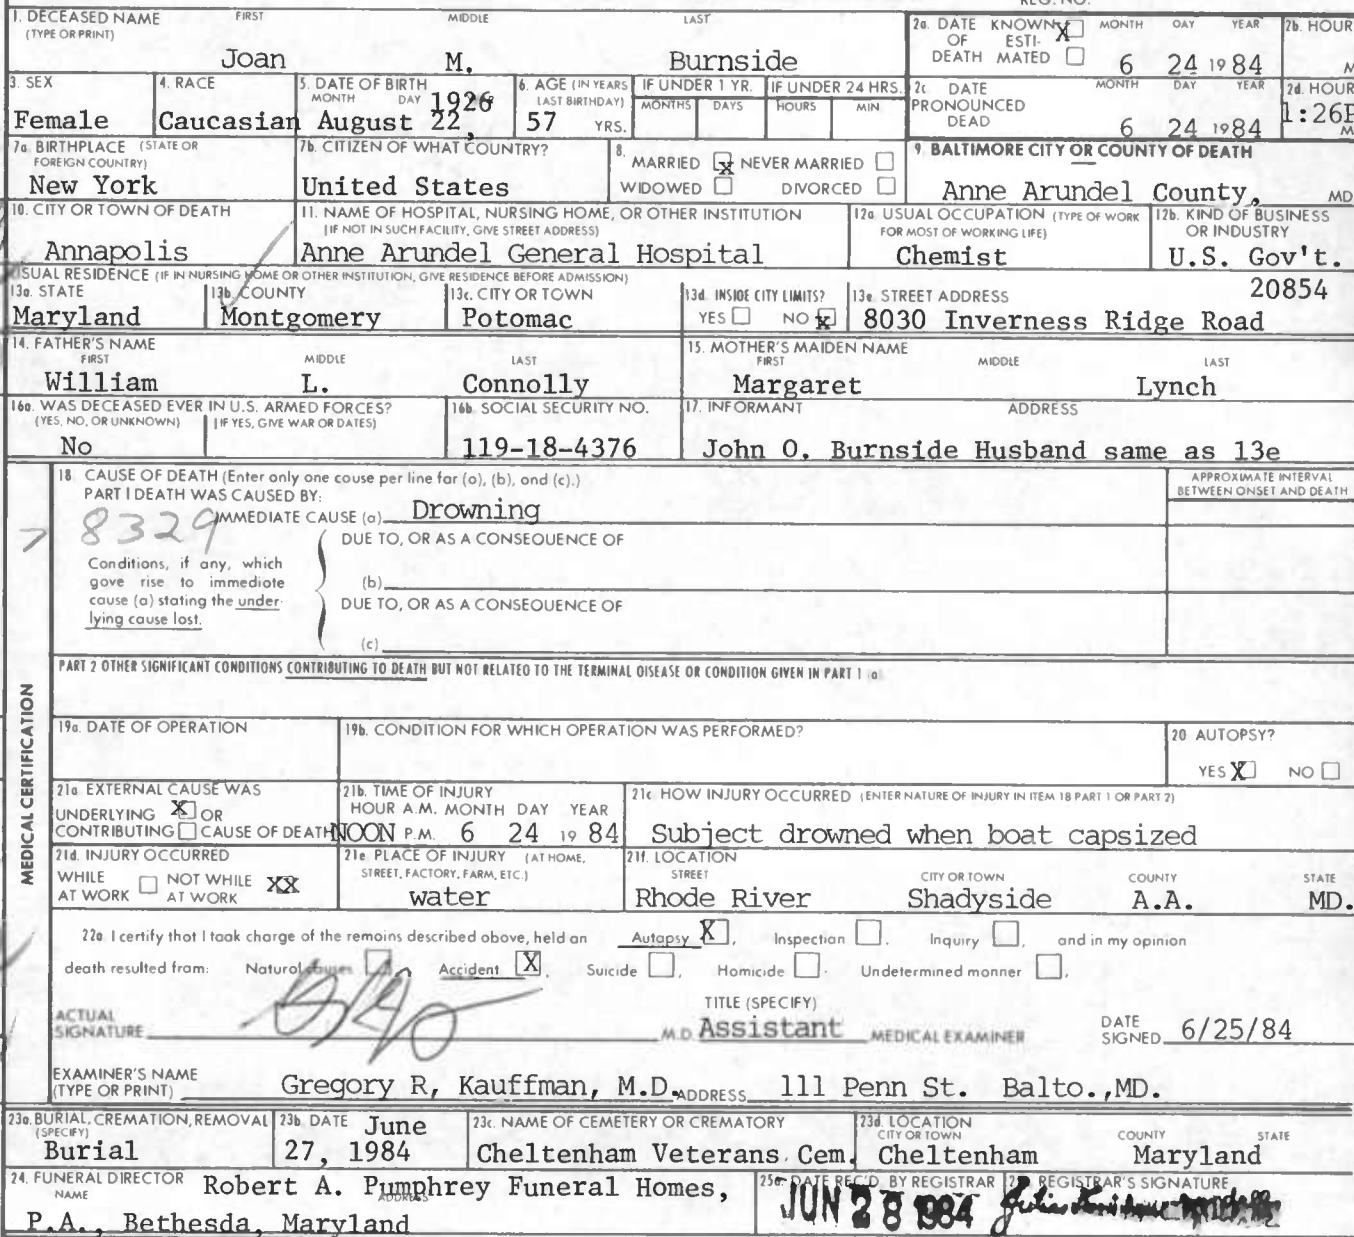 REG. NO.
1. DECEASED NAME FIRST MIDDLE LAST
(TYPE OR PRINT)
Joan M. Burnside
2a. DATE KNOWN X MONTH DAY YEAR
OF ESTI-
DEATH MATED
6 24 1984
2b. HOUR
M
3. SEX
Female
4. RACE
Caucasian
5. DATE OF BIRTH
MONTH DAY 1926
August 22,
6. AGE (IN YEARS
LAST BIRTHDAY)
57 YRS.
IF UNDER 1 YR.
MONTHS DAYS
IF UNDER 24 HRS.
HOURS MIN
2c. DATE MONTH DAY YEAR
PRONOUNCED
DEAD
6 24 1984
2d. HOUR
1:26P
M
7a. BIRTHPLACE (STATE OR
FOREIGN COUNTRY)
New York
7b. CITIZEN OF WHAT COUNTRY?
United States
8.
MARRIED x NEVER MARRIED
WIDOWED DIVORCED
9. BALTIMORE CITY OR COUNTY OF DEATH
Anne Arundel County, MD
10. CITY OR TOWN OF DEATH
Annapolis
11. NAME OF HOSPITAL, NURSING HOME, OR OTHER INSTITUTION
(IF NOT IN SUCH FACILITY, GIVE STREET ADDRESS)
Anne Arundel General Hospital
12a. USUAL OCCUPATION (TYPE OF WORK
FOR MOST OF WORKING LIFE)
Chemist
12b. KIND OF BUSINESS
OR INDUSTRY
U.S. Gov't.
USUAL RESIDENCE (IF IN NURSING HOME OR OTHER INSTITUTION, GIVE RESIDENCE BEFORE ADMISSION)
13a. STATE
Maryland
13b. COUNTY
Montgomery
13c. CITY OR TOWN
Potomac
13d. INSIDE CITY LIMITS?
YES NO x
13e. STREET ADDRESS 20854
8030 Inverness Ridge Road
14. FATHER'S NAME
FIRST MIDDLE LAST
William L. Connolly
15. MOTHER'S MAIDEN NAME
FIRST MIDDLE LAST
Margaret Lynch
16a. WAS DECEASED EVER IN U.S. ARMED FORCES?
(YES, NO, OR UNKNOWN) (IF YES, GIVE WAR OR DATES)
No
16b. SOCIAL SECURITY NO.
119-18-4376
17. INFORMANT ADDRESS
John O. Burnside Husband same as 13e
18. CAUSE OF DEATH (Enter only one cause per line for (a), (b), and (c).)
PART I DEATH WAS CAUSED BY:
APPROXIMATE INTERVAL
BETWEEN ONSET AND DEATH
8329
IMMEDIATE CAUSE (a) Drowning
DUE TO, OR AS A CONSEQUENCE OF
Conditions, if any, which
gave rise to immediate
cause (a) stating the under-
lying cause last.
(b)
DUE TO, OR AS A CONSEQUENCE OF
(c)
PART 2 OTHER SIGNIFICANT CONDITIONS CONTRIBUTING TO DEATH BUT NOT RELATED TO THE TERMINAL DISEASE OR CONDITION GIVEN IN PART 1 (a)
MEDICAL CERTIFICATION
19a. DATE OF OPERATION
19b. CONDITION FOR WHICH OPERATION WAS PERFORMED?
20 AUTOPSY?
YES X NO
21a. EXTERNAL CAUSE WAS
UNDERLYING X OR
CONTRIBUTING CAUSE OF DEATH
21b. TIME OF INJURY
HOUR A.M. MONTH DAY YEAR
NOON P.M. 6 24 19 84
21c. HOW INJURY OCCURRED (ENTER NATURE OF INJURY IN ITEM 18 PART 1 OR PART 2)
Subject drowned when boat capsized
21d. INJURY OCCURRED
WHILE NOT WHILE XX
AT WORK AT WORK
21e. PLACE OF INJURY (AT HOME,
STREET, FACTORY, FARM, ETC.)
water
21f. LOCATION
STREET CITY OR TOWN COUNTY STATE
Rhode River Shadyside A.A. MD.
22a. I certify that I took charge of the remains described above, held an Autopsy X, Inspection , Inquiry , and in my opinion
death resulted from: Natural causes , Accident X, Suicide , Homicide . Undetermined manner ,
ACTUAL
SIGNATURE
M.D.
TITLE (SPECIFY)
Assistant MEDICAL EXAMINER
DATE
SIGNED 6/25/84
EXAMINER'S NAME
(TYPE OR PRINT) Gregory R, Kauffman, M.D. ADDRESS 111 Penn St. Balto.,MD.
23a. BURIAL, CREMATION, REMOVAL
(SPECIFY)
Burial
23b. DATE June
27, 1984
23c. NAME OF CEMETERY OR CREMATORY
Cheltenham Veterans Cem.
23d. LOCATION
CITY OR TOWN COUNTY STATE
Cheltenham Maryland
24. FUNERAL DIRECTOR
NAME ADDRESS
Robert A. Pumphrey Funeral Homes,
P.A., Bethesda, Maryland
25a. DATE REC'D. BY REGISTRAR
JUN 28 1984
REGISTRAR'S SIGNATURE